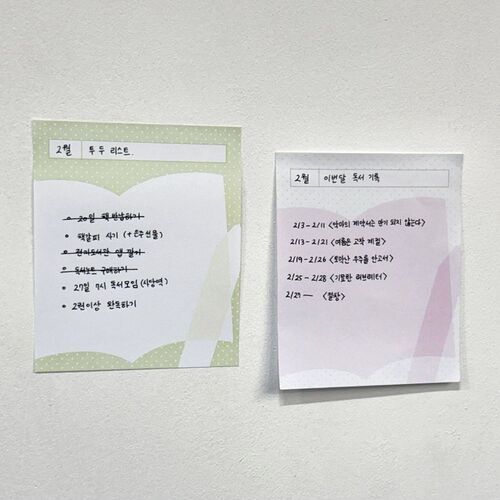 2월 투두 리스트.
20일 책 반납하기
책갈피 사기 (+선물)
전자도서관 앱 깔기
독서노트 구매하기
27일 7시 독서모임 (사당역)
2권이상 완독하기
2월 이번달 독서 기록
2/3-2/11 <악마의 계약서는 만기 되지 않는다>
2/13-2/21 <여름은 고작 계절>
2/19-2/26 <조각난 우주를 안고서>
2/25-2/28 <기묘한 러브레터>
2/27 — <절창>